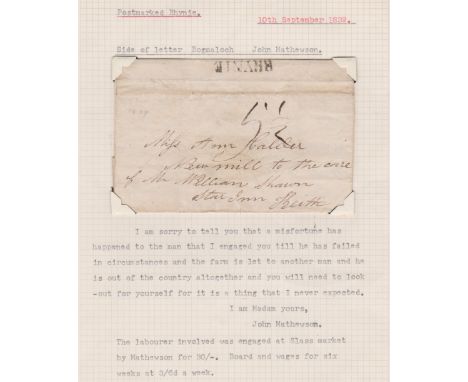 Postmarked Rhynie.
10th September 1832.
Side of letter Bogmaloch John Mathewson.
RHYNIE
5½
Miss Ann Calder
New mill to the care
of Mr William Shawn
Star Inn Keith
I am sorry to tell you that a misfortune has
happened to the man that I engaged you till he has failed
in circumstances and the farm is let to another man and he
is out of the country altogether and you will need to look
-out for yourself for it is a thing that I never expected.
I am Madam yours,
John Mathewson.
The labourer involved was engaged at Glass market
by Mathewson for 20/-. Board and wages for six
weeks at 3/6d a week.